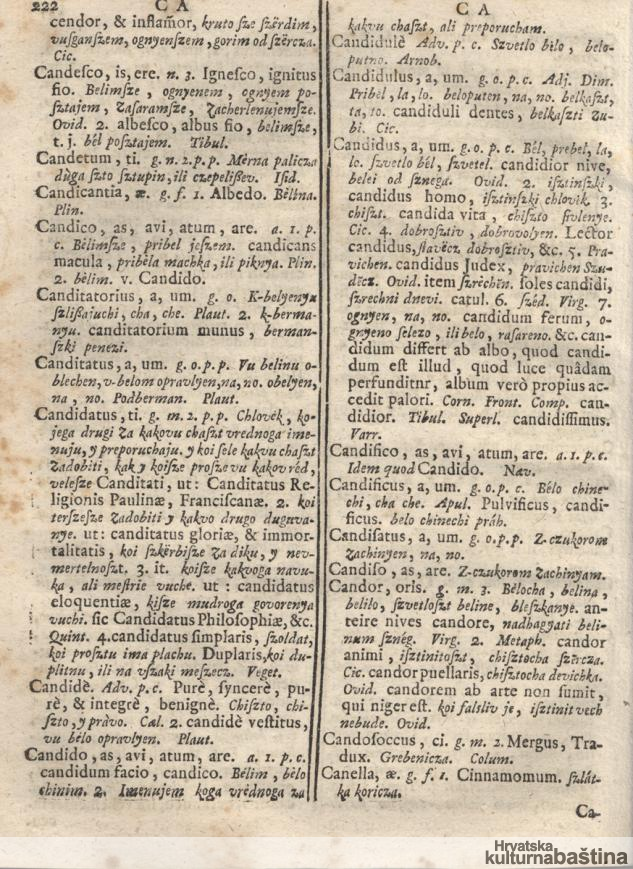 222 C A
cendor, & inflamor, kruto ſze ſzërdim,
vuſganſzem, ognyenſzem, gorim od ſzërcza.
Cic.
Candeſco, is, ere. n. 3. Igneſco, ignitus
fio. Belimſze, ognyenem, ognyem po-
ſztajem, Zaſaramſze, Zacherlenujemſze.
Ovid. 2. albeſco, albus fio, belimſze,
t. j. bël poſztajem. Tibul.
Candetum, ti. g. n. 2. p. p. Mërna palicza
dùga ſzto ſztupin, ili czepeliſev. Iſid.
Candicantia, æ. g. f. 1. Albedo. Bëlina.
Plin.
Candico, as, avi, atum, are. a. 1. p.
c. Bëlimſze, pribel jeſzem. candicans
macula, pribëla machka, ili piknya. Plin.
2. bëlim. v. Candido.
Canditatorius, a, um. g. o. K-belyenyu
szliſsajuchi, cha, che. Plaut. 2. k-berma-
nyu. canditatorium munus, berman-
ſzki penezi.
Canditatus, a, um. g. o. p. p. Vu belinu o-
blechen, v-belom opravlyen, na, no. obelyen,
na, no. Podberman. Plaut.
Candidatus, ti. g. m. 2. p. p. Chlovëk, ko-
jega drugi Za kakovu chaſzt vrednoga ime-
nuju, y preporuchaju. y koi ſele kakvu chaſzt
Zadobiti, kak y koiſze proſze vu kakov rëd,
veleſze Canditati, ut: Canditatus Re-
ligionis Paulinæ, Franciſcanæ. 2. koi
terſzeſze Zadobiti y kakvo drugo duguva-
nye. ut: canditatus gloriæ, & immor-
talitatis, koi ſzkërbiſze Za diku, y nev-
mertelnoſzt. 3. it. koiſze kakvoga navu-
ka, ali meſtrie vuche. ut: candidatus
eloquentiæ, kiſze mudroga govorenya
vuchi. ſic Candidatus Philoſophiæ, &c.
Quint. 4. candidatus ſimplaris, ſzoldat,
koi proſztu ima plachu. Duplaris, koi du-
plitnu, ili na vſzaki meſzecz. Veget.
Candidè. Adv. p. c. Purè, ſyncerè, pu-
rè, & integrè, benignè. Chiſzto, chi-
ſzto, y pràvo. Cæl. 2. candidè veſtitus,
vu bëlo opravlyen. Plaut.
Candido, as, avi, atum, are. a. 1. p. c.
candidum facio, candico. Bëlim, bëlo
chinim. 2. Imenujem koga vrëdnoga za
C A
kakvu chaſzt, ali preporucham.
Candidulè Adv. p. c. Szvetlo bilo, belo-
putno. Arnob.
Candidulus, a, um. g. o. p. c. Adj. Dim.
Pribel, la, lo. beloputen, na, no. belkaſzt,
ta, to. candiduli dentes, belkaſzti Zu-
bi. Cic.
Candidus, a, um. g. o. p. c. Bël, prebel, la,
lo. ſzvetlo bël, ſzvetel. candidior nive,
belei od ſznega. Ovid. 2. iſztinſzki,
candidus homo, iſztinſzki chlovik. 3.
chiſzt. candida vita, chiſzto ſivlenye.
Cic. 4. dobroſztiv, dobrovolyen. Lector
candidus, ſlavëcz dobroſztiv, &c. 5. Pra-
vichen. candidus Judex, pravichen Szu-
dëcz. Ovid. item ſzrëchën. ſoles candidi,
ſzrechni dnevi. catul. 6. ſzéd. Virg. 7.
ognyen, na, no. candidum ferum, o-
gnyeno ſelezo, ili belo, raſareno. &c. can-
didum differt ab albo, quod candi-
dum eſt illud, quod luce quâdam
perfunditnr, album verò propius ac-
cedit palori. Corn. Front. Comp. can-
didior. Tibul. Superl. candidiſſimus.
Varr.
Candifico, as, avi, atum, are. a. 1. p. c.
Idem quod Candido. Næv.
Candificus, a, um. g. o. p. c. Bélo chine-
chi, cha che. Apul. Pulvificus, candi-
ficus. belo chinechi präh.
Candiſatus, a, um. g. o. p. p. Z-czukorom
Zachinyen, na, no.
Candiſo, as, are. Z-czukorom Zachinyam.
Candor, oris. g. m. 3. Bëlocha, belina,
belilo, ſzvetloſzt beline, bleſzkanye. an-
teire nives candore, nadhagyati beli-
num ſznég. Virg. 2. Metaph. candor
animi, iſztinitoſzt, chiſztocha ſzërcza.
Cic. candor puellaris, chiſztocha devichka.
Ovid. candorem ab arte non ſumit,
qui niger eſt. koi falsliv je, iſztinit vech
nebude. Ovid.
Candoſoccus, ci. g. m. 2. Mergus, Tra-
dux. Grebenicza. Colum.
Canella, æ. g. f. 1. Cinnamomum. ſzlát-
ka koricza.
Ca-
Hrvatska
kulturnabaština